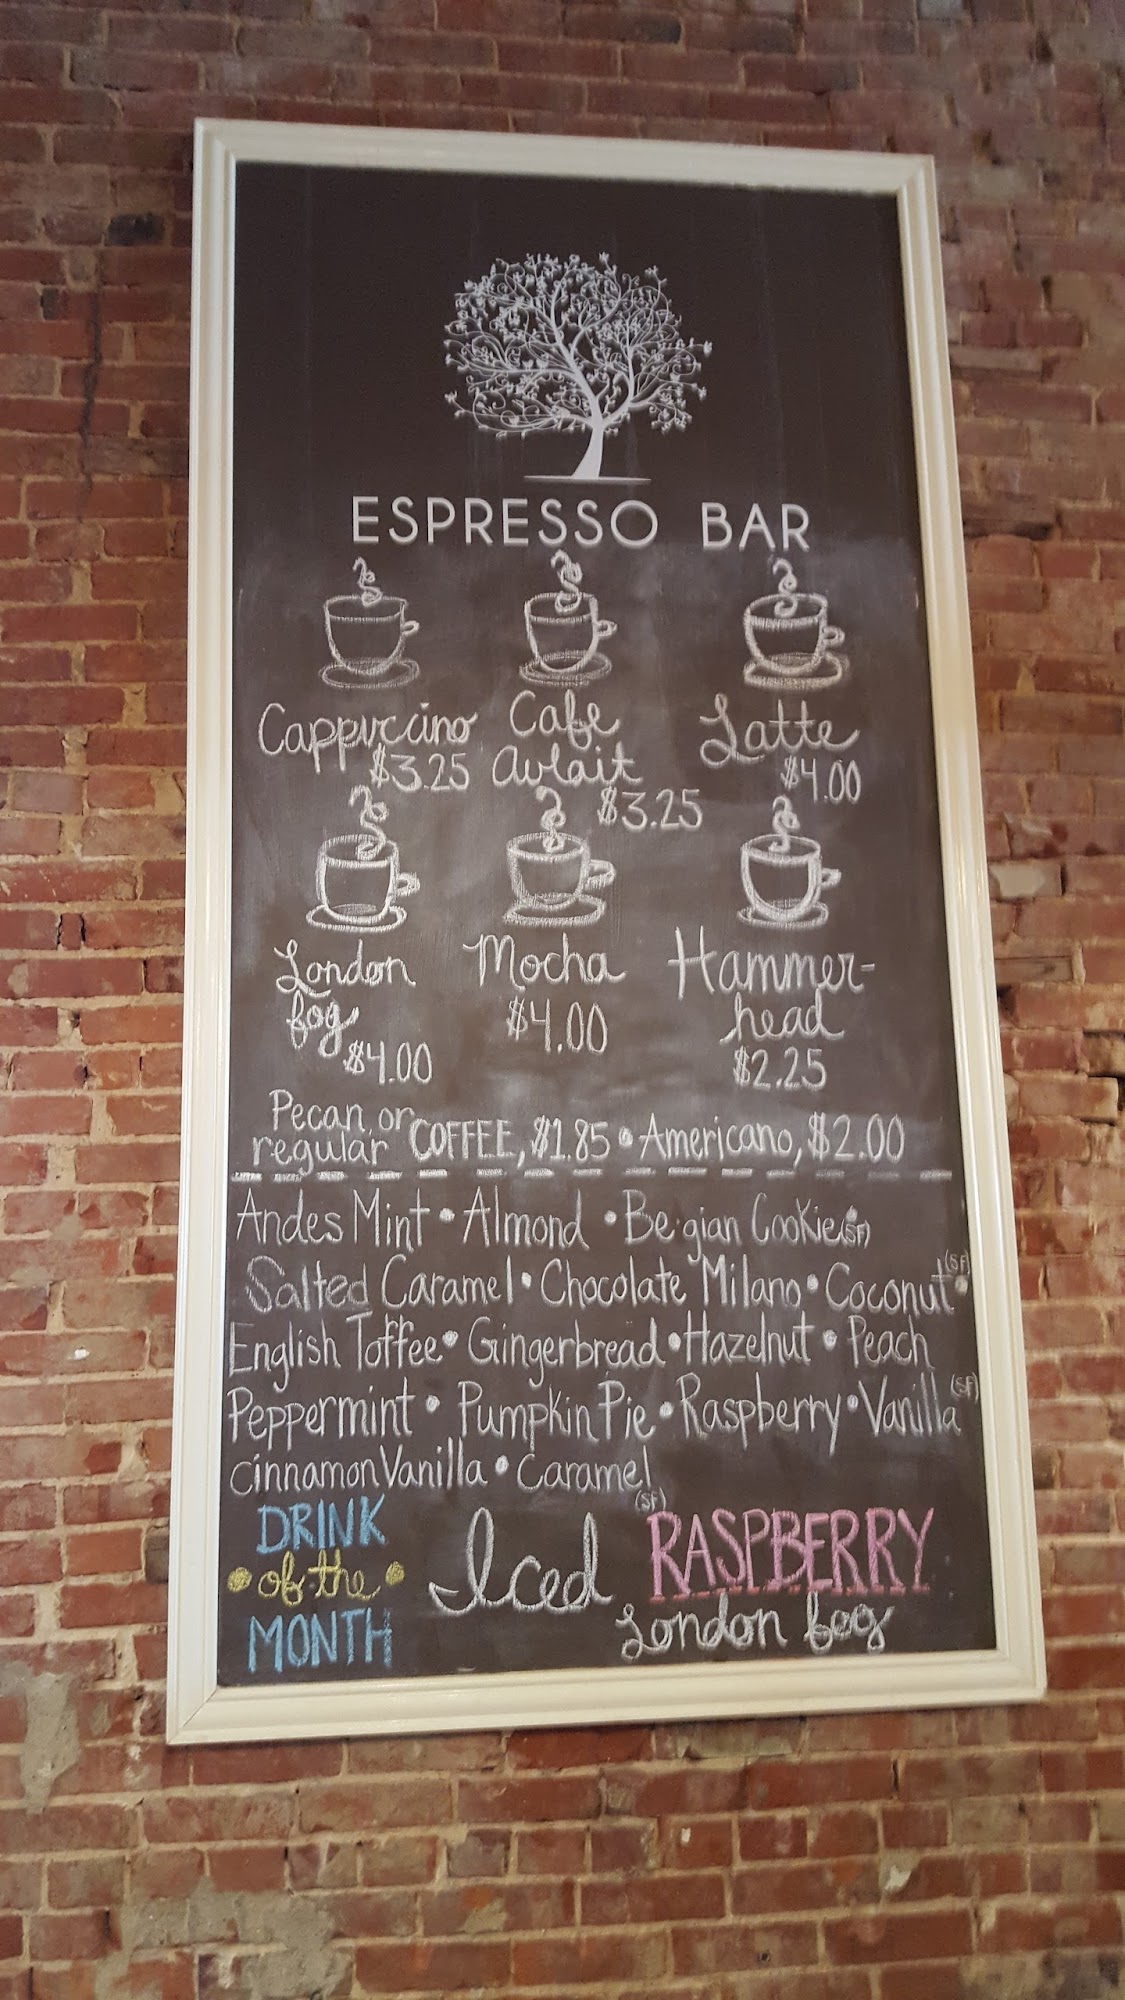 ESPRESSO BAR
Cappuccino
$3.25
Cafe
Aulait
$3.25
Latte
$4.00
London
fog
$4.00
Mocha
$4.00
Hammer-
head
$2.25
Pecan, or
regular COFFEE, $1.85 • Americano, $2.00
Andes Mint • Almond • Be gian Cookie (SF)
Salted Caramel • Chocolate Milano • Coconut (SF) •
English Toffee • Gingerbread • Hazelnut • Peach
Peppermint • Pumpkin Pie • Raspberry • Vanilla (SF)
cinnamon Vanilla • Caramel (SF)
DRINK
• of the •
MONTH
Iced RASPBERRY
London fog